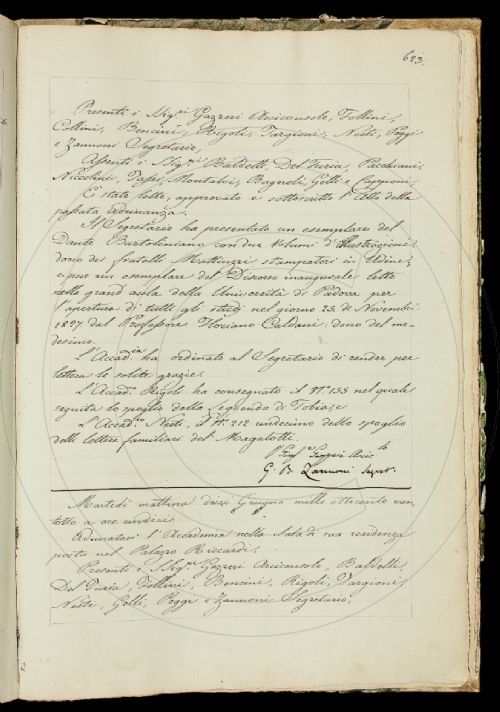 623.
Presenti i Sig.ri Gazzeri Arciconsolo, Follini,
Collini, Bencini, Rigoli, Targioni, Nesti, Poggi
e Zannoni Segretario,
Assenti i Sig.ri Baldelli, Del Furia, Pacchiani,
Niccolini, Montalvi, Bagnoli, Gelli e Capponi,
È stato letto, approvato e sottoscritto l'Atto della
passata Adunanza.
Il Segretario ha presentato un esemplare del
Dante Bartoliniano con due volumi d'Illustrazioni
dono dei fratelli Mattiuzzi stampatori in Udine,
e pure un esemplare del Discorso inaugurale letto
nella grand'aula della Università di Padova per
l'apertura di tutti gli studj nel giorno 23. di Novembre
1827 dal Professore Floriano Caldani: dono del me-
desimo.
L'Accad.ia ha ordinato al Segretario di render per
lettera le solite grazie.
L'Accad.o Rigoli ha consegnato il N.o 133 nel quale
seguita lo spoglio della Leggenda di Tobia, e
L'Accad.o Nesti, il N.o 212 undecimo dello spoglio
delle lettere familiari del Magalotti.
Gazzeri Arcic.lo
G. B. Zannoni Segret.
Martedì mattina dieci Giugno mille ottocento ven-
totto a ore undici
Adunatasi l'Accademia nella Sala di sua residenza
posta nel Palazzo Riccardi.
Presenti i Sig.ri Gazzeri Arciconsolo, Baldelli,
Del Furia, Follini, Bencini, Rigoli, Targioni,
Nesti, Gelli, Poggi e Zannoni Segretario,